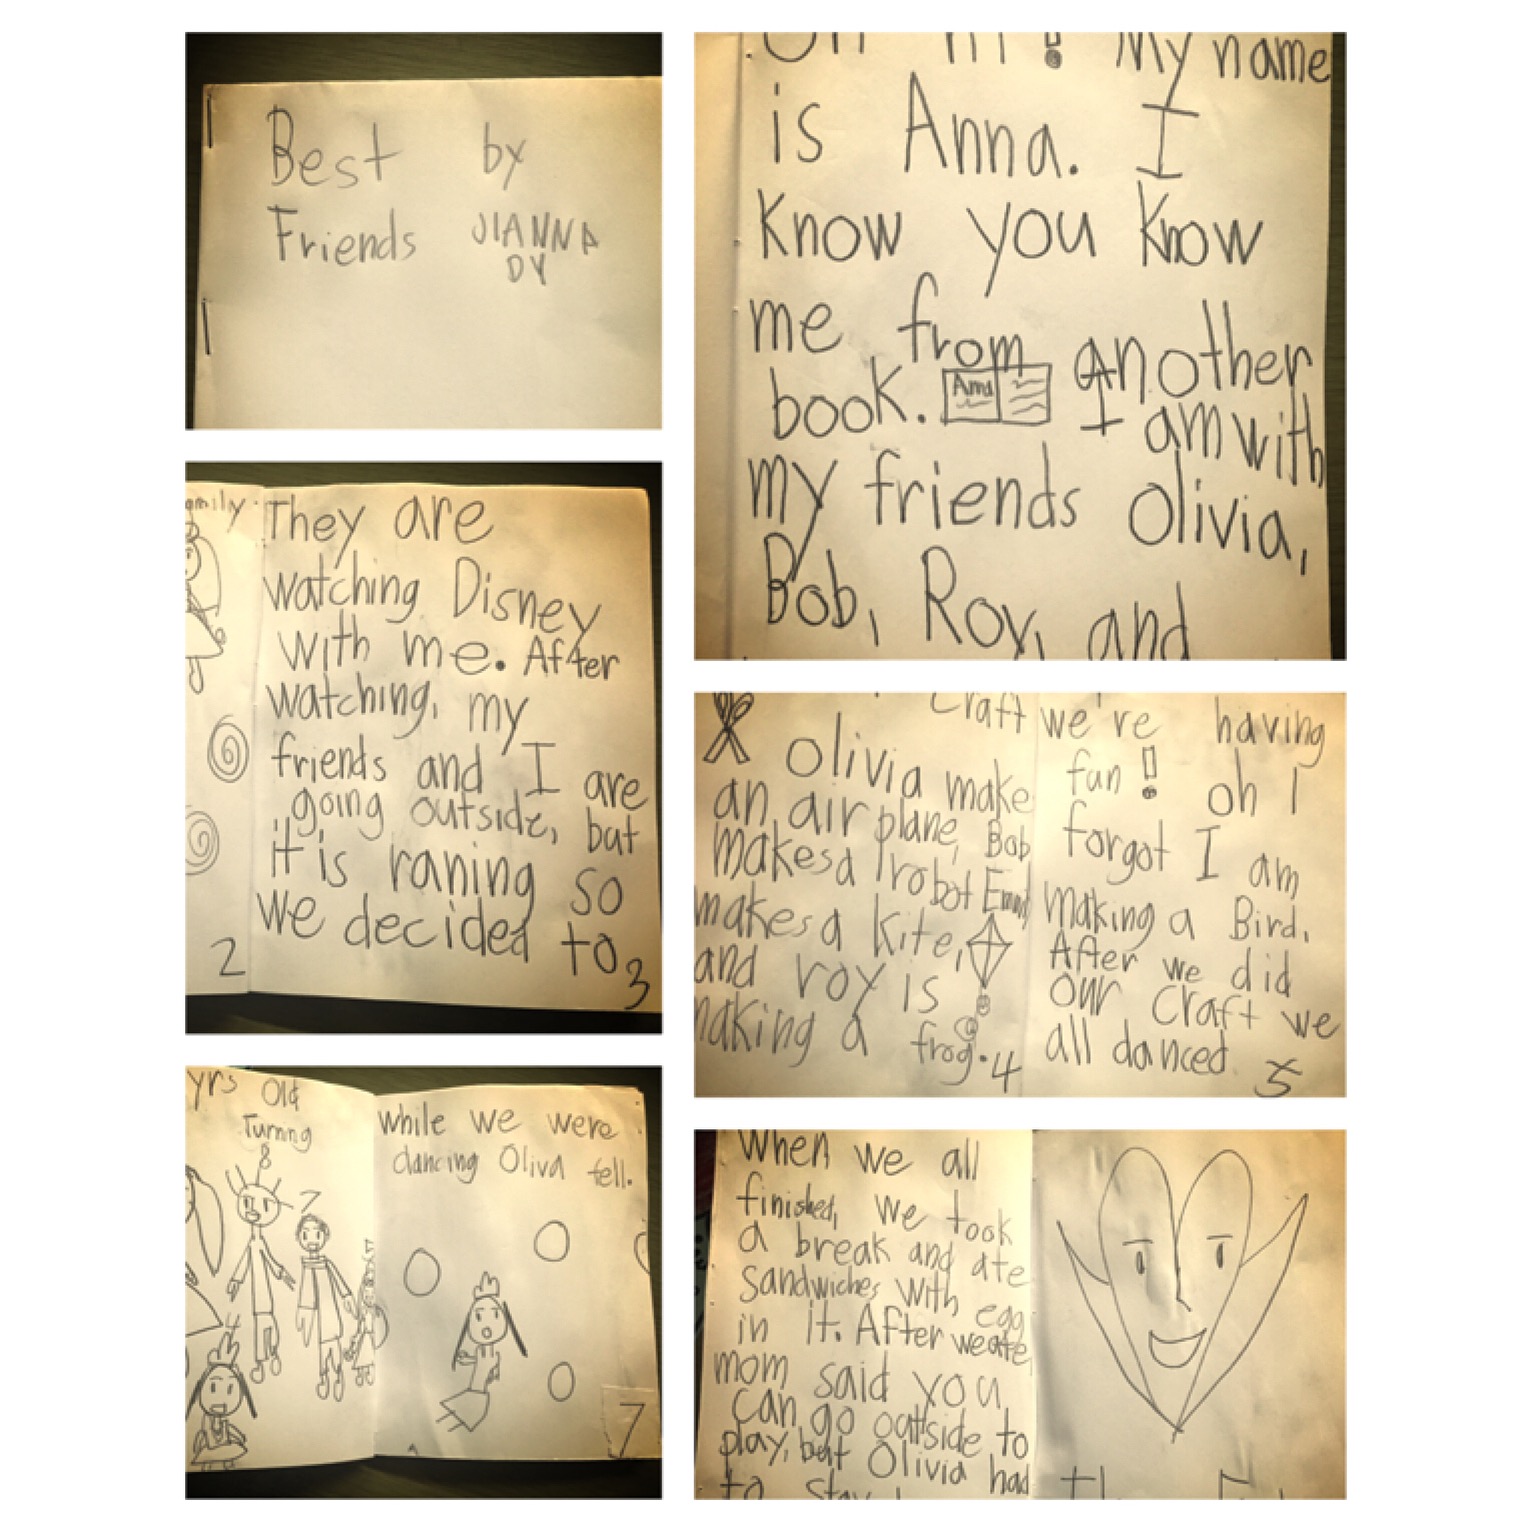 Best by
Friends JIANNA
DY
Oh hi! My name
is Anna. I
know you know
me from another
book. Anna I am with
my friends Olivia,
Bob, Roy, and
amily.
They are
watching Disney
with me. After
watching, my
friends and I are
going outside, but
it is raning so
we decided to
2
3
Craft
Olivia make
an airplane, Bob
makes a robot
makes a kite,
and roy is
making a frog.
4
we're having
fun! oh I
forgot I am
making a Bird.
After we did
our craft we
all danced
5
yrs Old
Turnng
8
7
4
while we were
dancing Oliva fell.
7
When we all
finished, we took
a break and ate
sandwiches with egg
in it. After we ate,
mom said you
can go outside to
play, but Olivia had
to stay